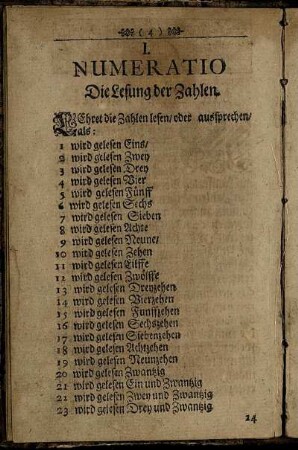 ( 4 )
I.
NUMERATIO
Die Lesung der Zahlen.
LEhret die Zahlen lesen/ oder aussprechen/
als:
1 wird gelesen Eins/
2 wird gelesen Zwey
3 wird gelesen Drey
4 wird gelesen Vier
5 wird gelesen Fünff
6 wird gelesen Sechs
7 wird gelesen Sieben
8 wird gelesen Achte
9 wird gelesen Neune/
10 wird gelesen Zehen
11 wird gelesen Eilffe
12 wird gelesen Zwölffe
13 wird gelesen Dreyzehen
14 wird gelesen Vierzehen
15 wird gelesen Funffzehen
16 wird gelesen Sechszehen
17 wird gelesen Siebenzehen
18 wird gelesen Achtzehen
19 wird gelesen Neunzehen
20 wird gelesen Zwantzig
21 wird gelesen Ein und Zwantzig
21 wird gelesen Zwey und Zwantzig
23 wird gelesen Drey und Zwantzig
24